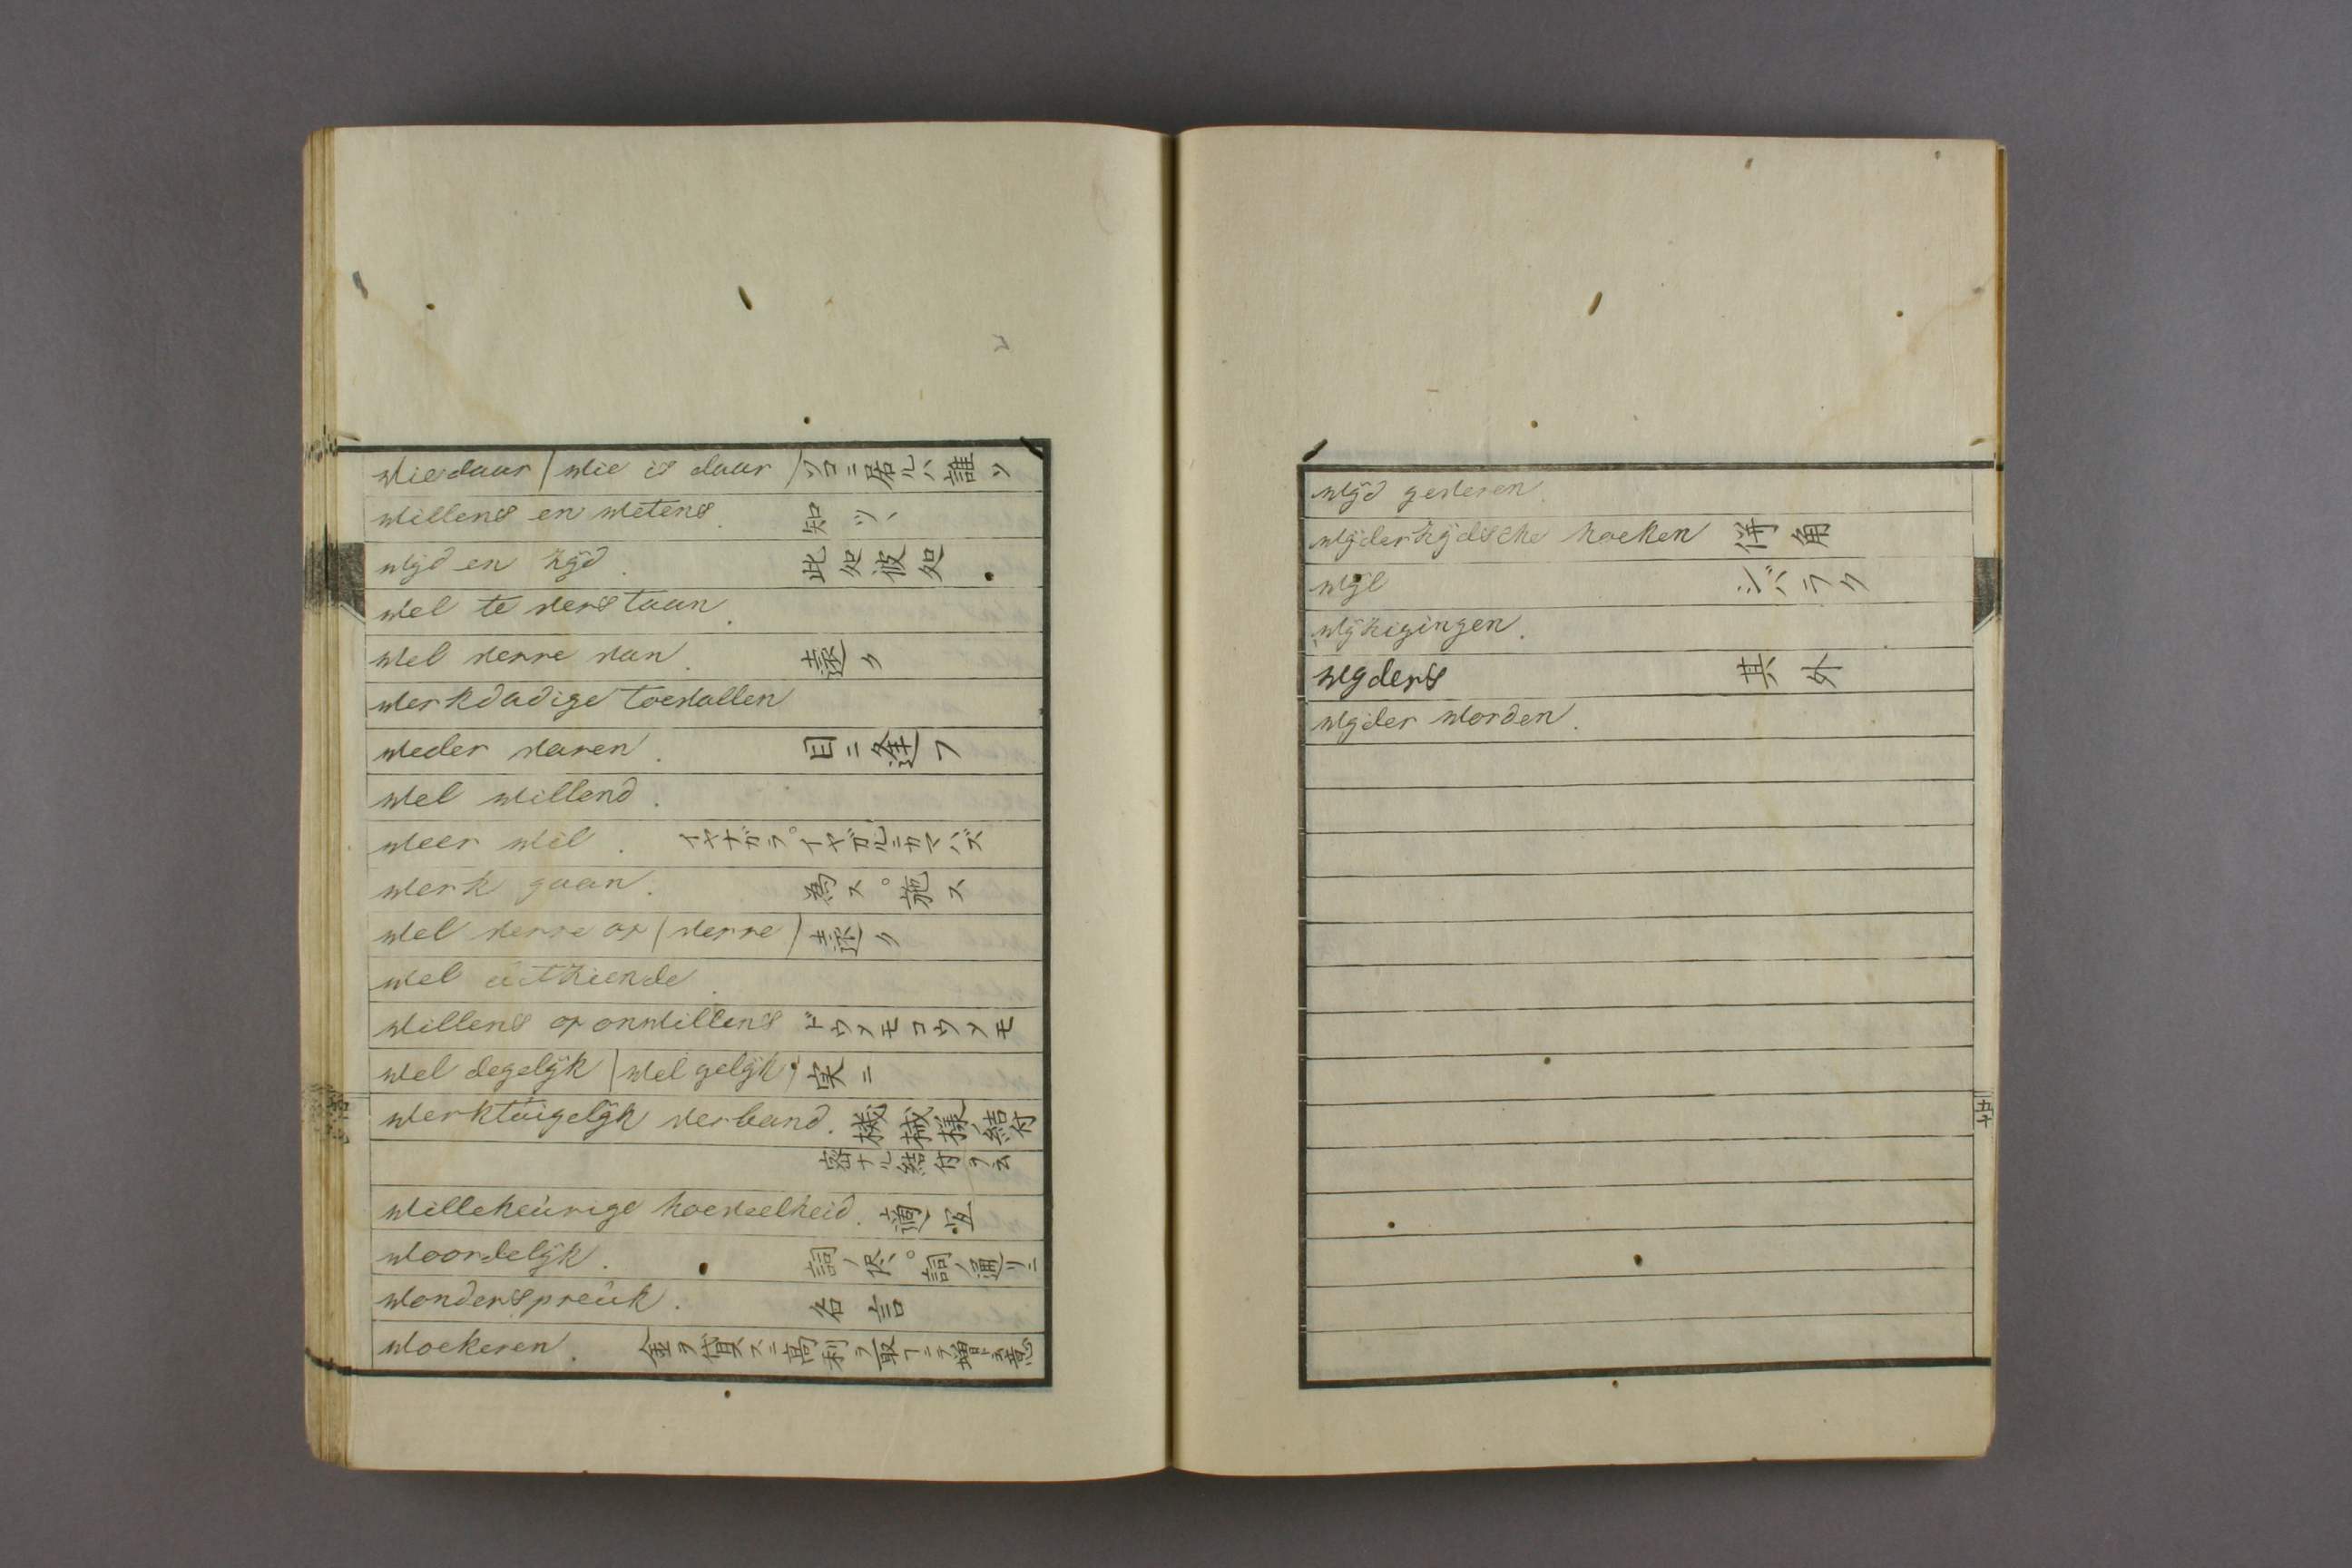 wiedaar (wie is daar) ソコニ居ルハ誰ソ
willens en wetens. 知ツヽ
wÿd en zÿd. 此処彼処
wel te verstaan.
wel verre van. 遠ク
werkdadige toevallen
weder varen. 目ニ逢フ
wel willend.
weer wil. イヤナガラ。イヤガルニカマハズ
werk gaan. 為ス。施ス
wel verre op (verre) 遠ク
wel uitziende.
willens of onwillens ドウソモコウソモ
wel degelÿk (wel gelÿk) 実ニ
werktúigelÿk verband. 機械様ノ結付
密ナル結付ヲ云
willekeúrige hoeveelheid. 適宜
woordelÿk. 詞ノ侭。詞ノ通リニ
wonderspreúk. 名言
woekeren. 金ヲ貸スニ高利ヲ取
wÿd geveren.
wÿderzÿdsche hoeken 併角
wÿl シバラク
wÿzigingen.
wyders 其外
wyder worden.
五十